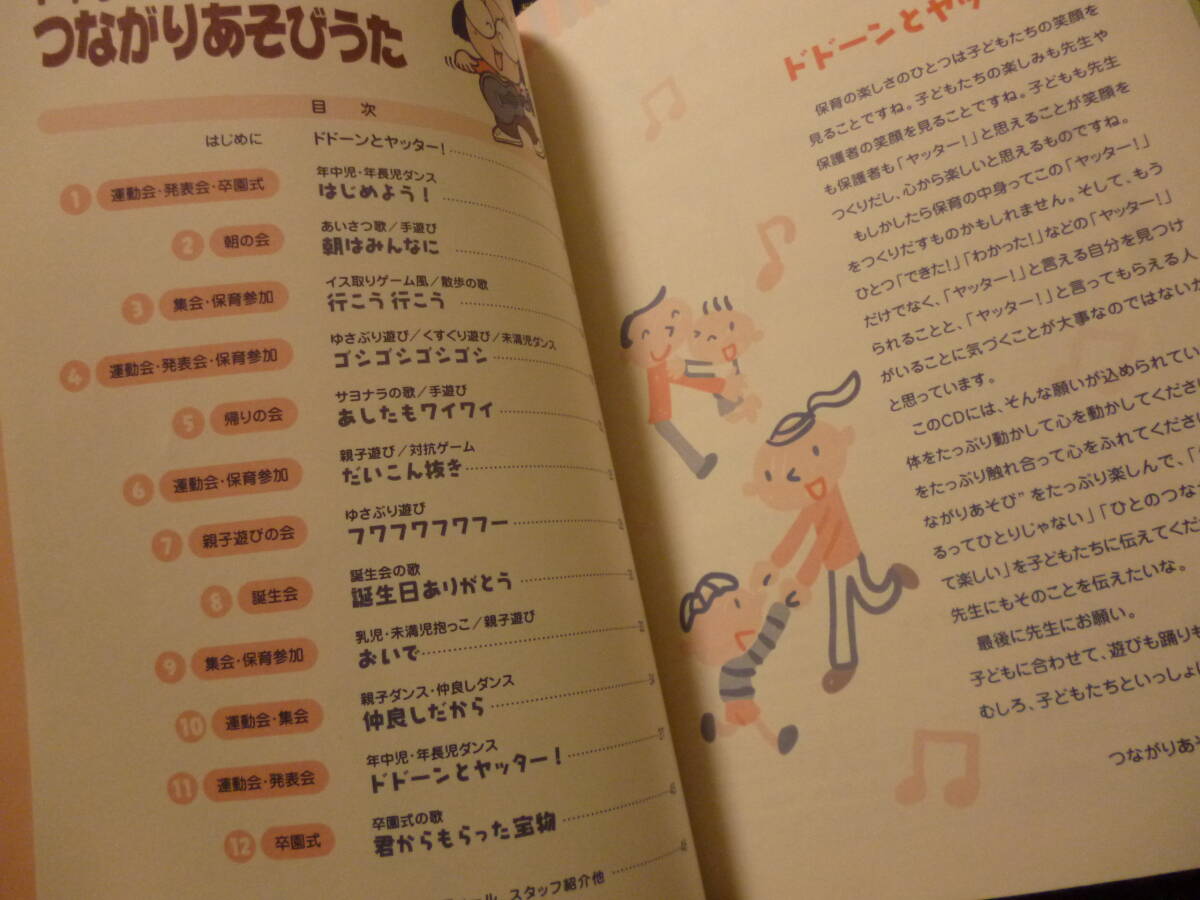 つながりあそびうた
目 次
はじめに ドドーンとヤッター!
1 運動会・発表会・卒園式 年中児・年長児ダンス
はじめよう!
2 朝の会 あいさつ歌/手遊び
朝はみんなに
3 集会・保育参加 イス取りゲーム風/散歩の歌
行こう 行こう
4 運動会・発表会・保育参加 ゆさぶり遊び/くすぐり遊び/未満児ダンス
ゴシゴシゴシゴシ
5 帰りの会 サヨナラの歌/手遊び
あしたもワイワイ
6 運動会・保育参加 親子遊び/対抗ゲーム
だいこん抜き
7 親子遊びの会 ゆさぶり遊び
フワフワフワフー
8 誕生会 誕生会の歌
誕生日ありがとう
9 集会・保育参加 乳児・未満児抱っこ/親子遊び
おいで
10 運動会・集会 親子ダンス・仲良しダンス
仲良しだから
11 運動会・発表会 年中児・年長児ダンス
ドドーンとヤッター!
12 卒園式 卒園式の歌
君からもらった宝物
スタッフ紹介他
ドドーンとヤッ
保育の楽しさのひとつは子どもたちの笑顔を
見ることですね。子どもたちの楽しみも先生や
保護者の笑顔を見ることですね。子どもも先生
も保護者も「ヤッター!」と思えることが笑顔を
つくりだし、心から楽しいと思えるものですね。
もしかしたら保育の中身ってこの「ヤッター!」
をつくりだすものかもしれません。そして、もう
ひとつ「できた!」「わかった!」などの「ヤッター!」
だけでなく、「ヤッター!」と言える自分を見つけ
られることと、「ヤッター!」と言ってもらえる人
がいることに気づくことが大事なのではないか
と思っています。
このCDには、そんな願いが込められてい
体をたっぷり動かして心を動かしてくださ
をたっぷり触れ合って心をふれてくださ
ながりあそび"をたっぷり楽しんで、「
るってひとりじゃない」「ひとのつな
て楽しい」を子どもたちに伝えてくだ
先生にもそのことを伝えたいな。
最後に先生にお願い。
子どもに合わせて、遊びも踊りも
むしろ、子どもたちといっしょに
つながりあそ